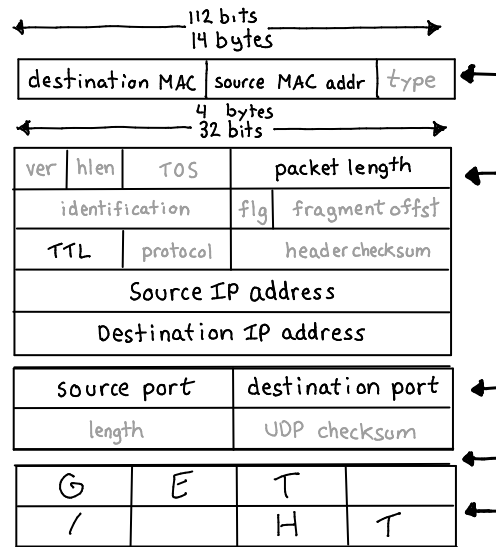 112 bits
14 bytes
destination MAC source MAC addr type
4 bytes
32 bits
ver hlen TOS packet length
identification flg fragment offst
TTL protocol header checksum
Source IP address
Destination IP address
source port destination port
length UDP checksum
G E T
/ H T